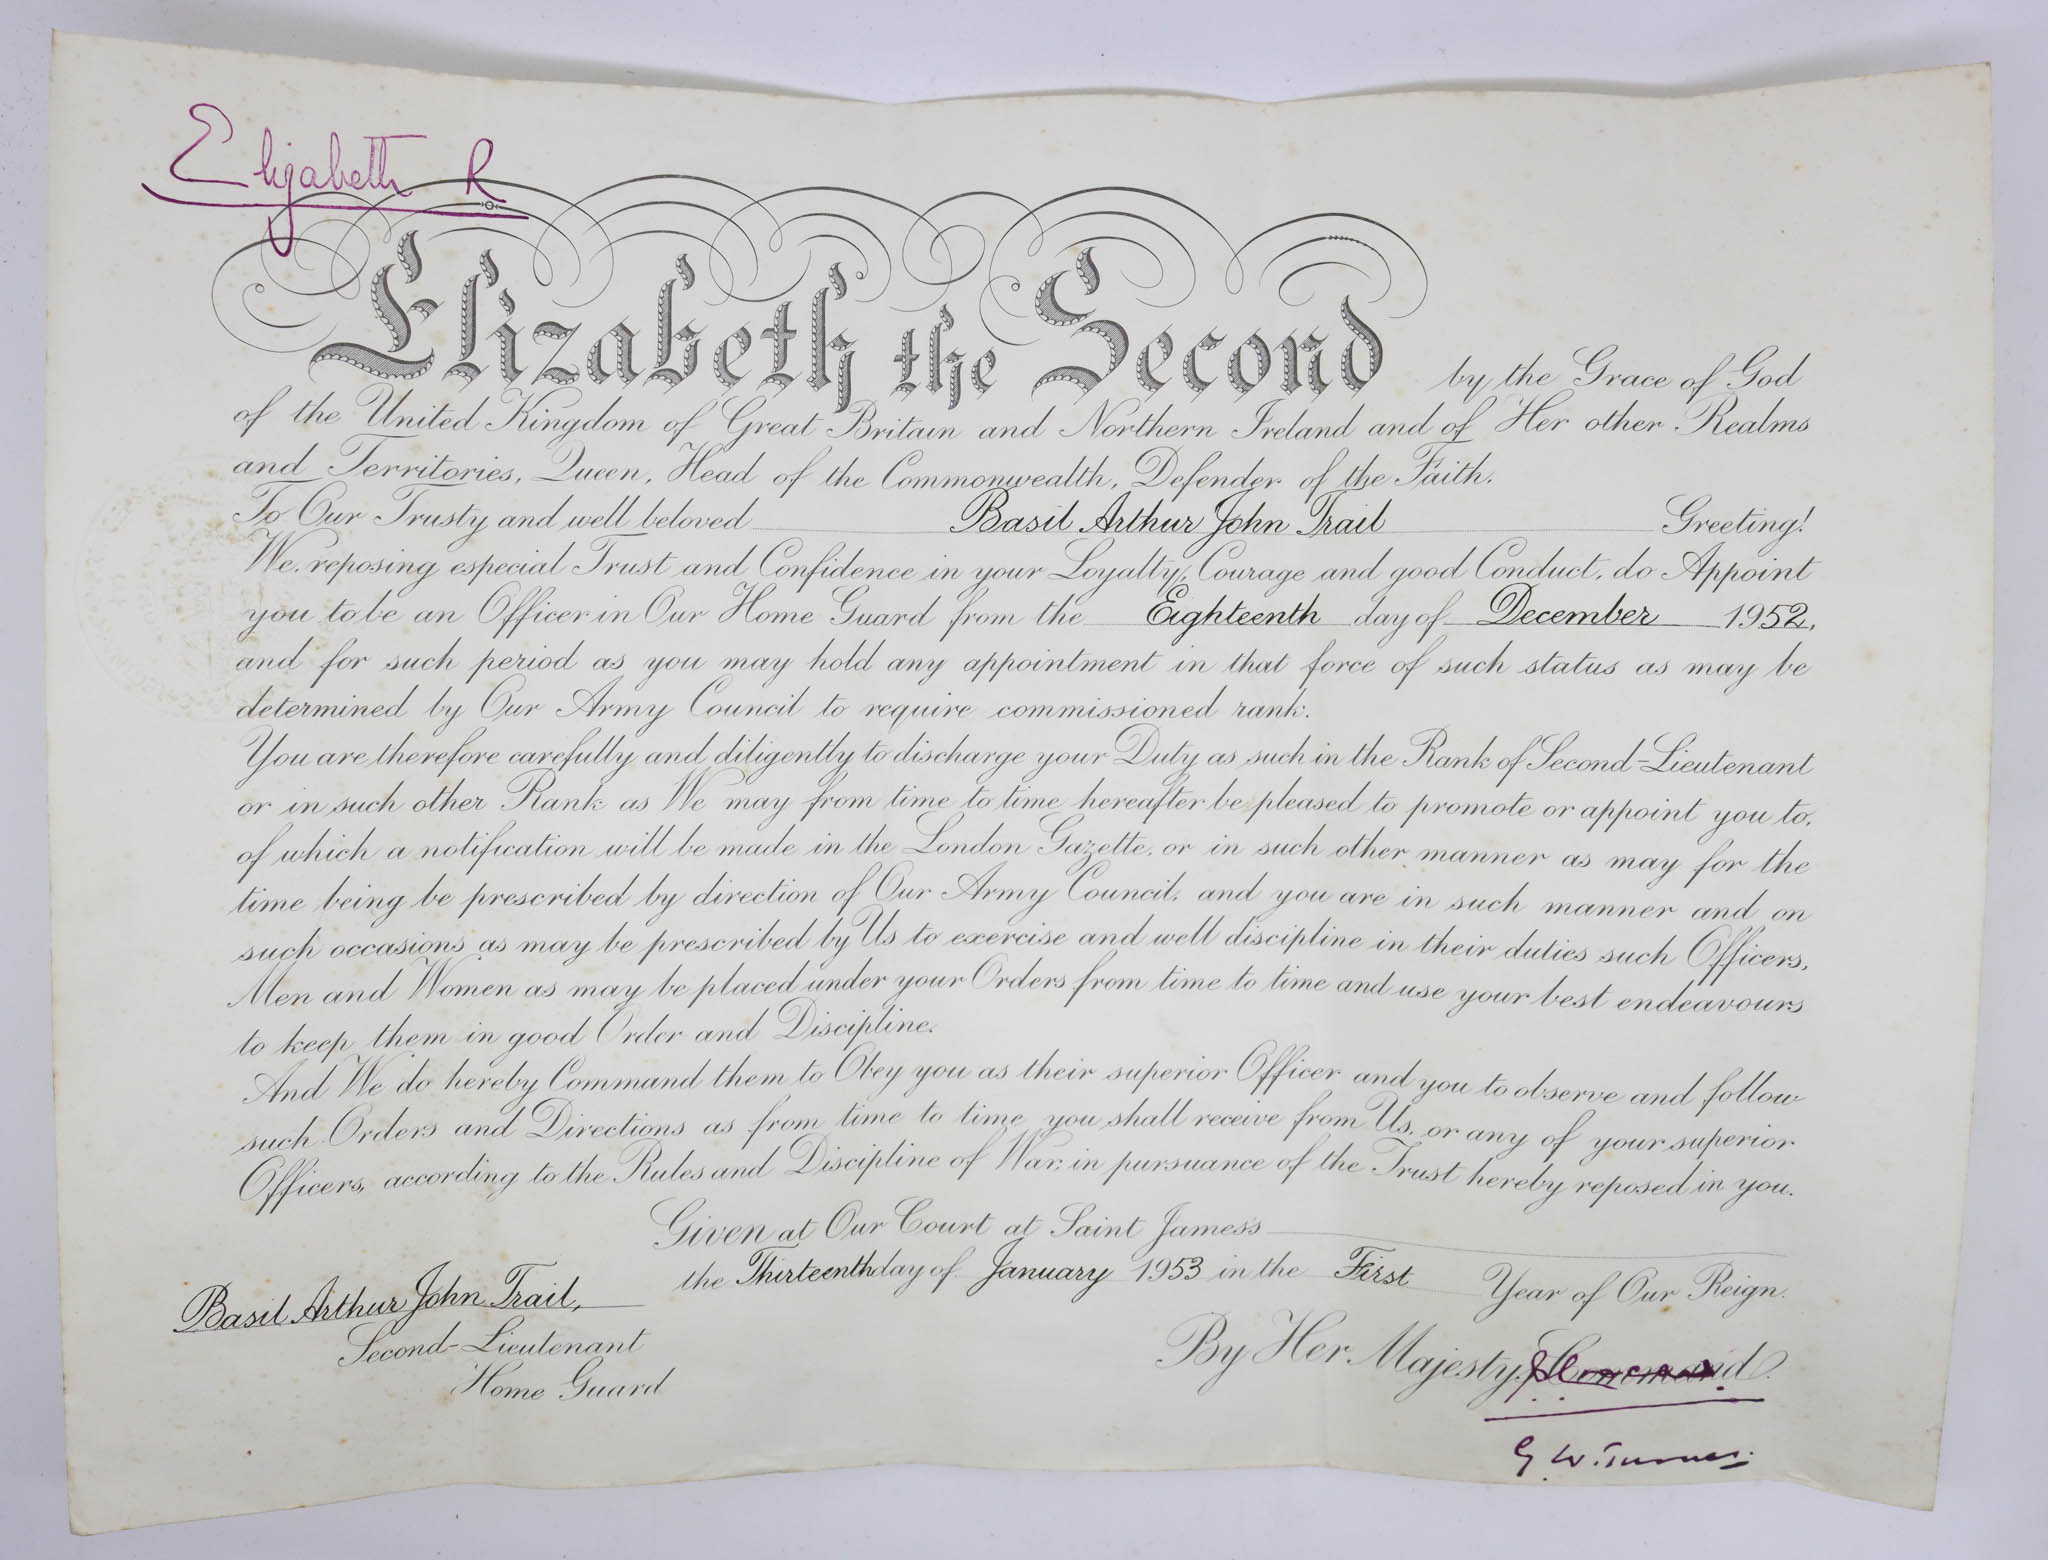 Elizabeth R
Elizabeth the Second by the Grace of God
of the United Kingdom of Great Britain and Northern Ireland and of Her other Realms
and Territories, Queen, Head of the Commonwealth, Defender of the Faith.
To Our Trusty and well beloved Basil Arthur John Trail Greeting!
We, reposing especial Trust and Confidence in your Loyalty, Courage and good Conduct, do Appoint
you to be an Officer in Our Home Guard from the Eighteenth day of December 1952,
and for such period as you may hold any appointment in that force of such status as may be
determined by Our Army Council to require commissioned rank.
You are therefore carefully and diligently to discharge your Duty as such in the Rank of Second-Lieutenant
or in such other Rank as We may from time to time hereafter be pleased to promote or appoint you to,
of which a notification will be made in the London Gazette, or in such other manner as may for the
time being be prescribed by direction of Our Army Council, and you are in such manner and on
such occasions as may be prescribed by Us to exercise and well discipline in their duties such Officers,
Men and Women as may be placed under your Orders from time to time and use your best endeavours
to keep them in good Order and Discipline.
And We do hereby Command them to Obey you as their superior Officer and you to observe and follow
such Orders and Directions as from time to time you shall receive from Us, or any of your superior
Officers, according to the Rules and Discipline of War, in pursuance of the Trust hereby reposed in you.
Given at Our Court at Saint James's
the Thirteenth day of January 1953 in the First Year of Our Reign.
By Her Majesty's Command.
Basil Arthur John Trail,
Second-Lieutenant
Home Guard
G. W. Turner